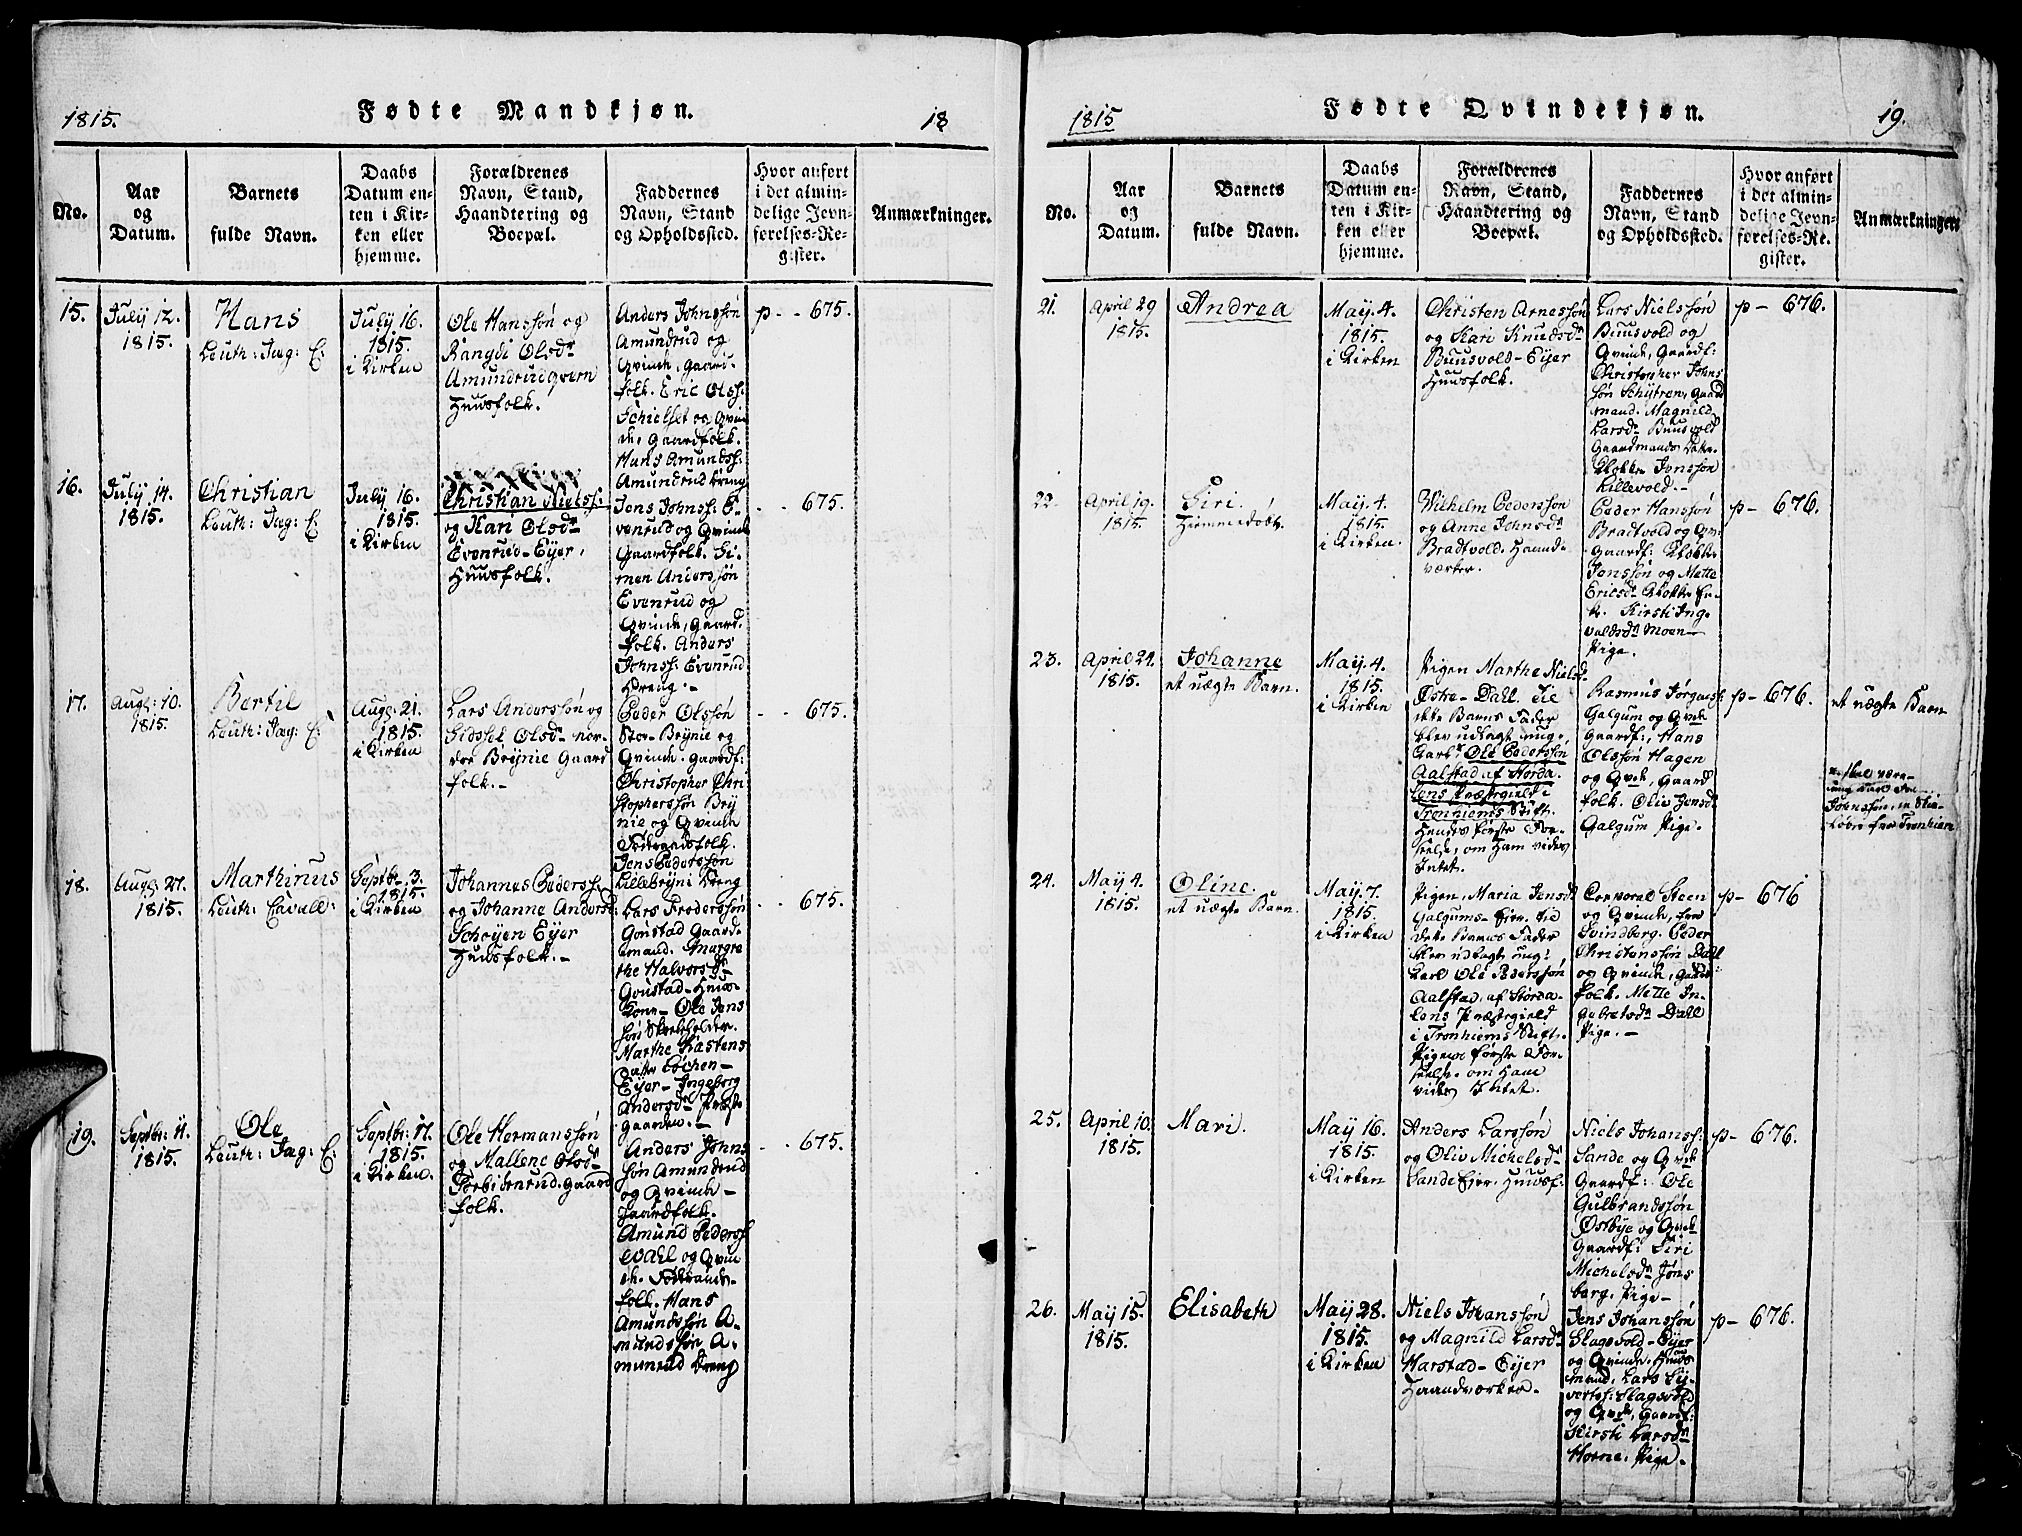 1815.
Fødte Mandkjøn.
18
No.
Aar
og
Datum.
Barnets
fulde Navn.
Daabs
Datum en-
ten i Kir-
ken eller
hjemme.
Forældrenes
Navn, Stand,
Haandtering og
Boepæl.
Faddernes
Navn, Stand
og Opholdssted.
Hvor anført
i det almin-
delige Jevn-
førelses-Re-
gister.
Anmærkninger.
15.
July 12.
1815.
Hans
Leuth: Jæg: C:
July 16.
1815.
i Kirken
Ole Hanssøn og
Rangdi Olsdr
Amundrudqvern
Huusfolk.
Anders Johnssøn
Amundrud og
Qvinde, Gaard-
folk. Eric Olss:
Schielset og Qvin
de, Gaardfolk.
Hans Amundss:
Amundrud Dreng
p - - 675.
16.
July 14.
1815.
Christian
Leuth: Jæg: C:
July 16.
1815.
i Kirken
Christian Nielss:
og Kari Olsdr
Evenrud-Eyer,
Huusfolk.
Jens Johnss: E-
venrud og Qvinde
Gaardfolk. Si-
men Anderssøn
Evenrud og
Qvinde, Gaard-
folk. Anders
Johnss: Evenrud
Dreng.-
- - 675.
17.
Aug: 10.
1815.
Bertil
Leuth: Jæg: C:
Aug: 21.
1815.
i Kirken
Lars Anderssøn og
Sidssel Olsdr nor-
dre Brynie Gaard
folk.-
Peder Olssøn
Stor-Brynie og
Qvinde. Gaardf:
Christopher Chri
stopherssøn Bry
nie og Qvinde
Føderaadsfolk.
Jens Pederssøn
Lillebryni Dreng
- - 675.
18.
Aug: 27.
1815.
Marthinus
Leuth: Cavall:
Septbr. 3.
1815.
i Kirken
Johannes Pederss.
og Johanne Andersd:
Schøyen Eyer
Huusfolk.-
Lars Frederssøn
Gonstad Gaard-
mand. Margre
the Halvorsdr
Gonstad-Huus-
kone- Ole Jens
søn
Marthe Kastens
datter Løchen-
Eyer- Ingeborg
Andersdr Præste
gaarden.-
- - 675.
19.
Septbr: 11.
1815.
Ole
Leuth: Jæg: C:
Septbr: 17.
1815.
i Kirken.
Ole Hermanssøn
og Mallene Olsdr
Torbiørnrud. Gaard
folk.
Anders Johns
søn Amundrud
og Qvinde-
Gaardfolk.
Amund Pederss
Wahl og Qvin
de. Føderaads-
folk. Hans
Amundssøn A-
mundssøn A-
munrud Dreng
- - 675.
1815
Fødte Qvindekjøn.
19.
No.
Aar
og
Datum.
Barnets
fulde Navn.
Daabs
Datum en-
ten i Kir-
ken eller
hjemme.
Forældrenes
Navn, Stand,
Haandtering og
Boepæl.
Faddernes
Navn, Stand
og Opholdssted.
Hvor anført
i det almin-
delige Jevn-
førelses-Re-
gister.
Anmærkninger
21.
April 29
1815.
Andrea
May. 4.
1815.
i Kirken
Christen Arnessøn
og Kari Knudsdr
Buusvold-Eyer
Huusfolk.
Lars Nielssøn
Buusvold og
Qvinde, Gaardf:
Christopher Johns
søn Schytten, Gaard
mand. Magnild
Larsdr Buusvold
Gaardmands Datter.
Klokker Jonssøn
Lillevold.-
p- 676.
22.
April 19.
1815.
Siri.
Hiemmedøbt.
May. 4.
1815.
i Kirken.
Wilhelm Pederssøn
og Anne Johnsdr
Bradtvold. Haand-
værker.
Peder Hanssøn
Bradtvold og Qv:
Gaardf: Klokker
Jonssøn og Mette
Ericsdr Klokker En-
ke. Kirsti Inge
valdsdr Moen-
Pige.
p- 676.
23.
April 24.
1815.
Johanne
et uægte Barn.
May. 4.
1815.
i Kirken
Pigen Marthe Nielsd
Østre-Dall. Til
dette Barns Fader
blev udlagt ung-
Carl Ole Pederssøn
Aalstad af Størda-
lens Præstegield i
Tronhiems Stift.
Hendes første For-
seelse, om Ham vides
Intet.
Rasmus Jørgenss:
Galgum og Qvde
Gaardf:, Hans
Olssøn Hagen
og Qvde, Gaard
folk. Oliv Jensdr
Galgum Pige.
p- 676.
et uægte Barn
n. skal være
ung Carl Ole
Johnssøn,
fra Tronhiem
24.
May 4.
1815.
Oline.
et uægte Barn.
May. 7.
1815.
i Kirken
Pigen, Maria Jensdr
Galgums-Eyer. Til
dette Barns Fader
blev udlagt ung:
Carl Ole Pederssøn
Aalstad, af Størda-
lens Præstegield
i Tronhiems Stift.
Pigens første For-
seelse. om Ham
vides Intet.
Corporal Steen
og Qvinde, fra
Svindberg. Peder
Christianssøn Dall
og Qvinde, Gaard-
folk. Mette In-
gebretsdr Dall
Pige.-
p- 676
25.
April 10.
1815.
Mari.
May 16.
1815.
i Kirken
Anders Larssøn
og Oliv Michelsdr
Sande Eyer. Huusf:
Niels Johanss:
Sande og Qvde
Gaardf: Ole
Gulbrandssøn
Østbye og Qvde
Gaardf: Siri
Michelsdr Jøns
berg. Pige-
p- 676.
26.
May 15.
1815.
Elisabeth
May 28.
1815.
i Kirken
Niels Johanssøn
og Magnild Larsdr
Harstad-Eyer
Haandværker.
Jens Johanssøn
Slagsvold-Eyer
og Qvinde. Huus-
mand, Lars Sy-
vertss: Slagsvold
og Qvde, Gaardf:
Kirsti Larsdr
Horne, Pige.
p- 676.